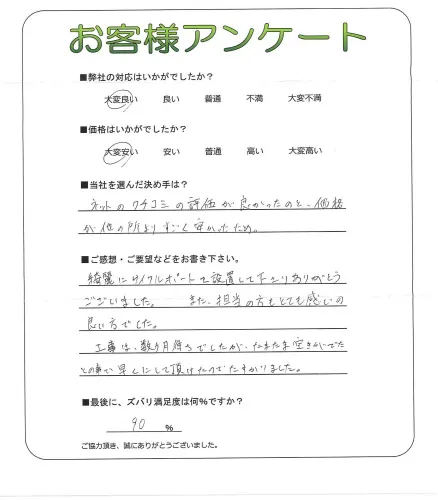 お客様アンケート
■弊社の対応はいかがでしたか?
大変良い 良い 普通 不満 大変不満
■価格はいかがでしたか?
大変安い 安い 普通 高い 大変高い
■当社を選んだ決め手は?
ネットのクチコミの評価が良かったのと、価格
が他の所よりすごく安かったため。
■ご感想・ご要望などをお書き下さい。
綺麗にサイクルポートを設置して下さりありがとう
ございました。 また、担当の方もとても感じの
良い方でした。
工事は、数ヶ月待ちでしたが、たまたま空きがでた
との事で早くにして頂けたのでたすかりました。
■最後に、ズバリ満足度は何%ですか?
90 %
ご協力頂き、誠にありがとうございました。